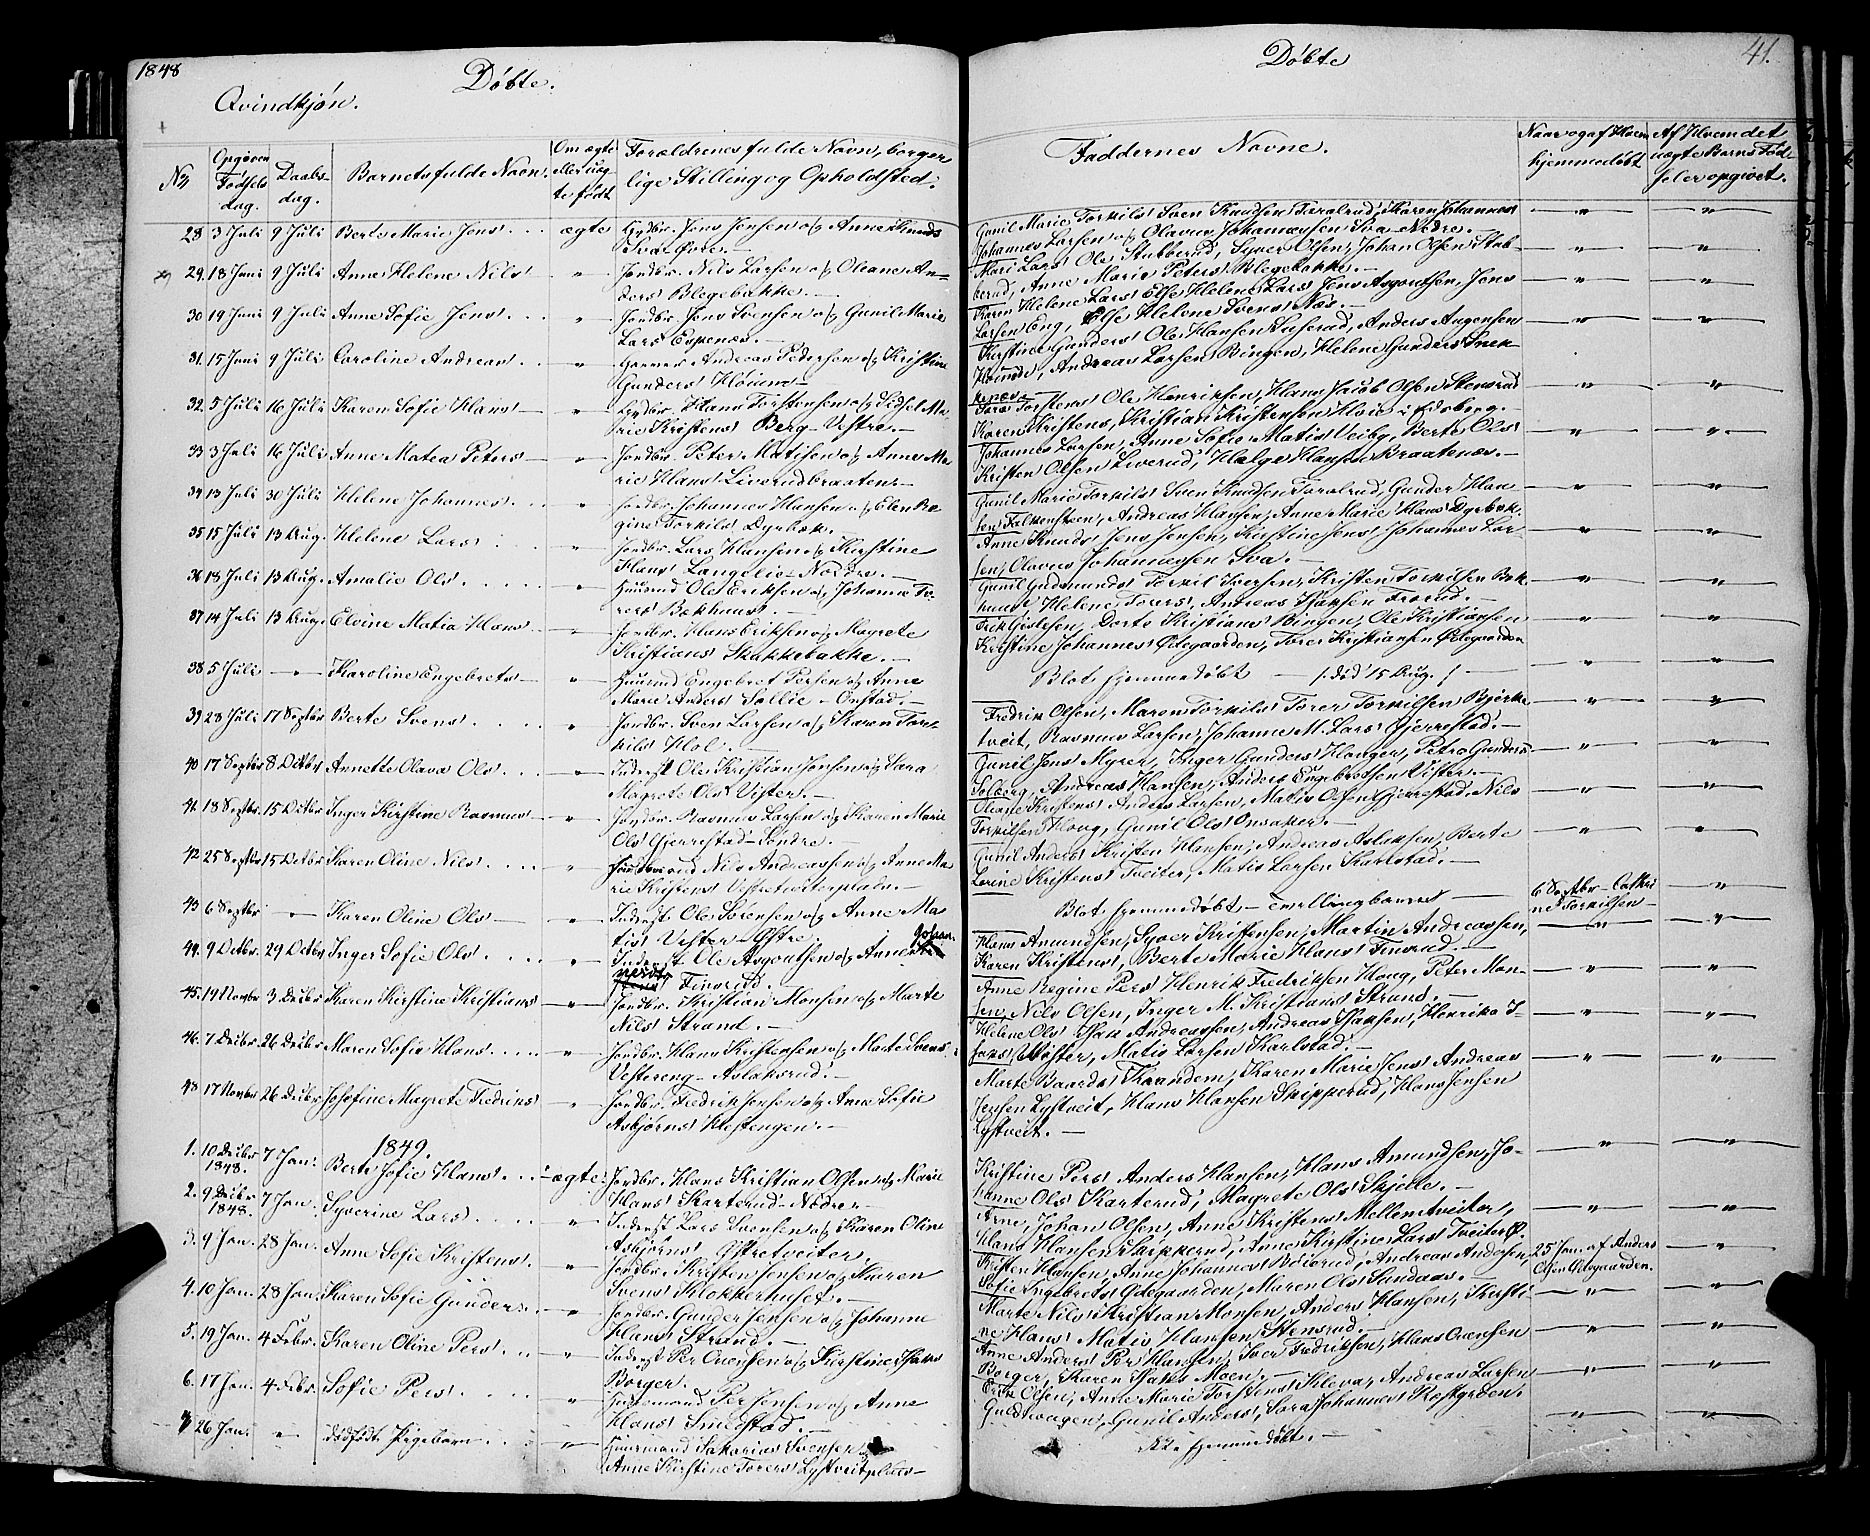 1848
Døbte.
Qvindkjøn.
No
Opgiven Fødsels dag.
Daabs dag.
Barnets fulde Navn.
Om ægte eller uægte født
Forældrenes fulde Navn, borgerlige Stilling og Opholdsted.
28 3 Juli 9 Juli Berte Marie Jens ægte Gdbr. Jens Jensen og Anne Knuds
Sva Øvre.
29. 18 Juni 9 Juli Anne Helene Nils " Jordbr. Nils Larsen og Oleane An-
ders Blegebakke.
30 19 Juni 9 Juli Anne Sofie Jens " Jordbr. Jens Svensen og Gunil Marie
Lars Espenæs.
31. 15 Juni 9 Juli Caroline Andreas " Andreas Pedersen og Kristine
Gunders Høium
32. 5 Juli 16 Juli Karen Sofie Hans " Gdbr. Hans Torstensen og Sidsel Ma-
rie Kristens Berg Vestre.
33 3 Juli 16 Juli Anne Matea Peters " Jordbr. Peter Matisen og Anne Ma
rie Hans Liverudbraaten
34 13 Juli 30 Juli Helene Johannes " Jordbr. Johannes Hansen og Elen Re
gine Torkils Dyrbek.
35 15 Juli 13 Aug. Helene Lars " Jordbr. Lars Hansen og Kirstine
Hans Langelie Nedre.
36 18 Juli 13 Aug. Amalie Ols " Huusmd Ole Eriksen og Johanne To-
rers Bekhuus.
37 14 Juli 13 Aug. Elvine Matia Hans " Jordbr. Hans Eriksen og Magrete
Kristians Skakkebakke.
38 5 Juli " Karoline Engebrets " Huusmd Engebret Persen og Anne
Marie Anders Sollie Onstad.
39 28 Juli 17 Septbr Berte Svens " Jordbr. Sven Larsen og Karen Tor-
kils Hol.
40 17 Septbr 8 Octbr Annette Olava Ols " Inderst Ole Kristian Jensen og Sara
Magrete Ols Vister.
41 18 Septbr. 15 Octbr Inger Kirstine Rasmus " Jordbr. Rasmus Larsen og Karen Marie
Ols Gjerrestad Søndre.
42 25 Septbr 15 Octbr Karen Oline Nils " Nils Andreassen og Anne Ma
rie Kristens Vestretveterplads.
43 6 Septbr " Karen Oline Ols " Inderst Ole Sørensen og Anne Ma
tis Vister Østre.
44. 9 Octbr. 29 Octbr Inger Sofie Ols " Inderst Ole Asgoutsen og Anne
Finsrud.
45. 19 Novbr 3 Decbr Karen Kirstine Kristians " Jordbr. Kristian Monsen og Marte
Nils Strand.
46. 7 Decbr. 26 Decbr Maren Sofie Hans " Jordbr. Hans Kristensen og Marte Svens
Vestereng Aslaksrud.
48 17 Novbr 26 Decbr Josefine Magrete Fredriks " Jordbr. Fredrik Jensen og Anne Sofie
Asbjørns Hestengen.
1849.
1. 10 Decbr 1848. 7 Jan. Berte Sofie Hans ægte Jordbr. Hans Kristian Olsen og Marie
Hans Karterud Nedre
2. 9 Decbr 1848. 7 Jan. Syverine Lars " Inderst Lars Svensen og Karen Oline
Asbjørns Østretveiter.
3. 9 Jan. 28 Jan. Anne Sofie Kristens " Jordbr. Kristen Jensen og Karen
Svens Klokkerhuset.
4. 10 Jan. 28 Jan. Karen Sofie Gunders " Jordbr. Gunder Jensen og Johanne
Hans Strand.
5. 19 Jan. 4 Febr. Karen Oline Pers " Inderst Per Ovensen og Kirstine Isaks
Borger.
6. 17 Jan. 4 Febr. Sofie Pers " Huusmand Per Jensen og Anne
Hans Smedstad.
26 Jan. " dødfødt Pigebarn " Huusmand Sakarias Svensen
Anne Kirstine Torers Lystveitplads
Døbte
41.
Faddernes Navne.
Naar og af Hvem hjemmedøbt
Af Hvem det uægte Barns Fødsel er opgivet.
Gunil Marie Torkils Sven Knudsen Toralrud, Karen Johannes
Johannes Larsen og Olaves Johannessen Sva Nedre.
Mari Lars Ole Stubberud, Syver Olsen, Johan Olsen Stub-
berud, Anne Marie Peters Blegebakke.
Karen Helene Lars Else Helene Lars Jens Asgoutsen, Jens
Larsen Eng, Else Helene Svens Næs.
Kirstine Gunders Ole Hansen Anders Augensen
Høium, Andreas Larsen Bingen, Helene Gunders Snek-
kenæs
Sara Torstens Ole Henriksen, Hans Jacob Olsen Stensrud
Karen Kristens, Kristian Kristensen Hoie i Eidsberg.
Johannes Larsen, Anne Sofie Matis Veiby, Berte Ols
Kristen Olsen Liverud, Helge Hansen Braatenæs.
Gunil Marie Torkils Sven Knudsen Toralrud, Gunder Han-
sen Falkensteen, Andreas Hansen, Anne Marie Hans Dyrebek.
Anne Knuds Jens Jensen, Kirstine Jens, Johannes Lar-
sen, Olaves Johannessen Sva.
Gunil Gudmunds Torkil Iversen, Kristen Torkilsen Bek
huus, Helene Torers, Andreas Isaksen Frorud.
Erik Gislesen, Dorte Kristians Bingen, Ole Kristiansen
Kirstine Johannes Ødegaarden, Torer Kristiansen Ødegaarden
Blot hjemmedøbt /: død 15 Aug. :/
Fredrik Olsen, Maren Torkils Torer Torkilsen Bjerke
tveit, Rasmus Larsen, Johanne M. Lars Gjerrestad.
Gunil Jens Myrer, Inger Gunders Houger, Petro Gunders
Solberg, Andreas Hansen, Anders Engebretsen Vister.
Oleane Kristens Anders Larsen, Matis Olsen Gjerrestad, Nils
Torkilsen Houg, Gunil Ols Onsaker.
Gunil Anders Kristen Hansen, Andreas Aslaksen, Berte
Lovine Kristens Tveiter, Matis Larsen Karlstad.
Blot hjemmedøbt tvillingbarn 6 Septbr Cathri
ne Torkilsen
Hans Amundsen, Syver Kristensen, Martin Andreassen,
Karen Kristens, Berte Marie Hans Finsrud.
Anne Regine Pers Henrik Fredriksen Houg, Peter Mon-
sen, Nils Olsen, Inger M. Kristians Strand.
Helene Ols Isak Andreassen, Andreas Isaksen, Henrik I-
saks Vister, Matis Larsen Karlstad.
Marte Baards Kaandem, Karen Marie Jens Andreas
Jensen Lystveit, Hans Hansen Skipperud, Hans Jensen
Lystveit.
Kristine Pers Anders Hansen, Hans Amundsen, Jo-
hanne Ols Karterud, Magrete Ols Skjelle.
Arne, Johan Olsen, Anne Kristens Mellemtveiter,
Hans Hansen Skipperud, Anne Kirstine Lars Tveiter Ø.
Kristen Hansen, Anne Johannes Böierud, Andreas Andersen, 25 Jan. af Anders
Sofie Ingebrets Ødegaarden, Maren Ols Sandaas. Olsen Ødegaarden.
Marte Nils Kristian Monsen, Anders Hansen, Kirsti
ne Hans Matis Hansen Stensrud.
Anne Anders Per Hansen, Iver Fredriksen, Hans Ovensen
Borger, Karen Isaks Moen.
Erik Olsen, Anne Marie Torstens Kleva, Andreas Larsen
Guldvogen, Gunil Anders, Sara Johannes Kostgarden.
Ikke hjemmedøbt.